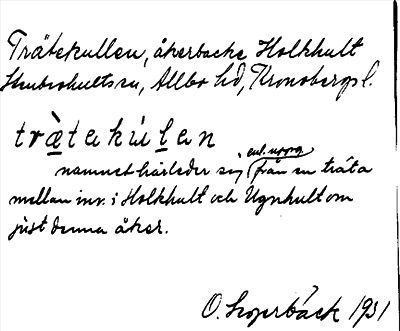 Trätekullen, åkerbacke Holkhult
Skatelövs sn, Allbo hd, Kronobergs l.
trà̱tekúḻen
enl. uppg.
namnet härleder sig från en träta
mellan inv. i Holkhult och Ugnhult om
just denna åker.
O. Lagerbäck 1931